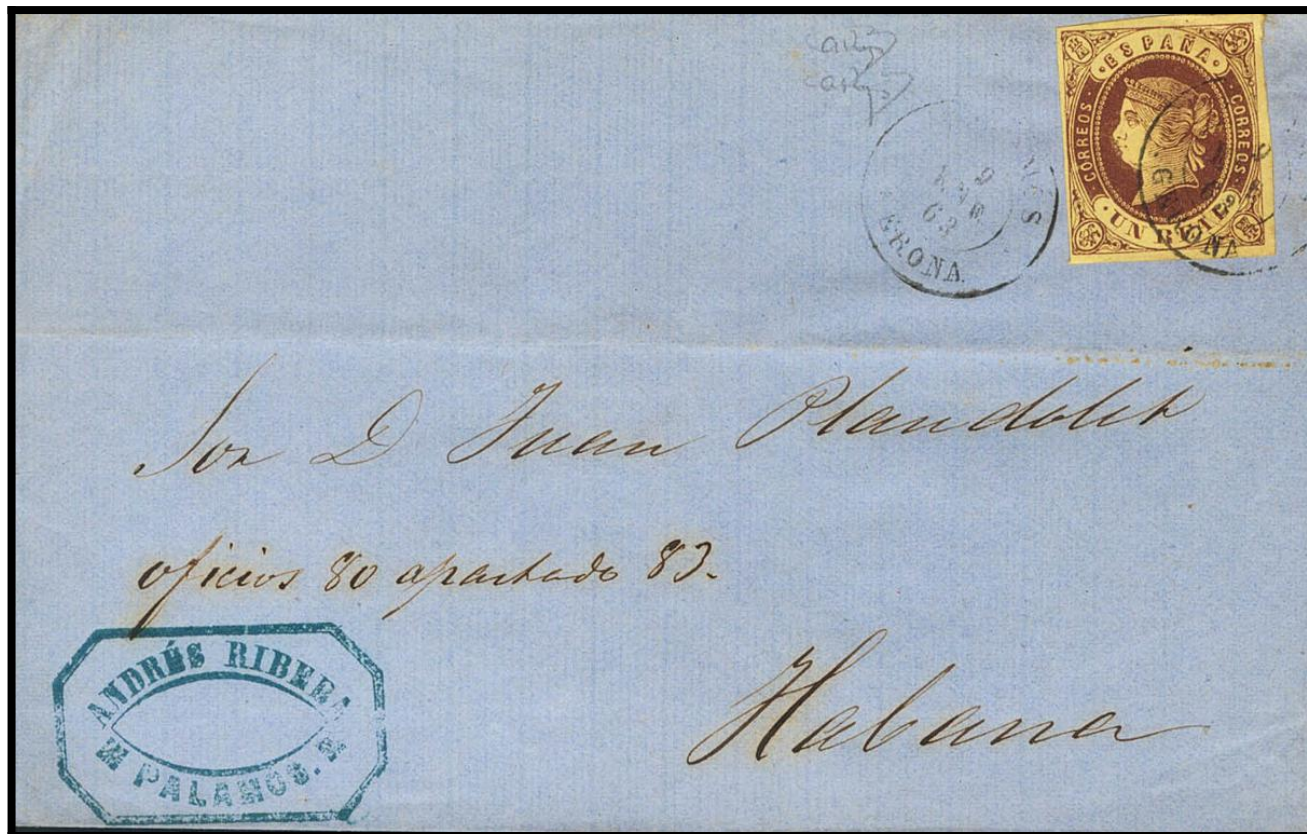 · ESPAÑA ·
CORREOS
CORREOS
· UN REAL ·
9
ENE
63
GERONA.
GERONA
Sor D Juan Plandolit
oficios 80 apartado 83.
Habana
ANDRÉS RIBERA
PALAMÓS.